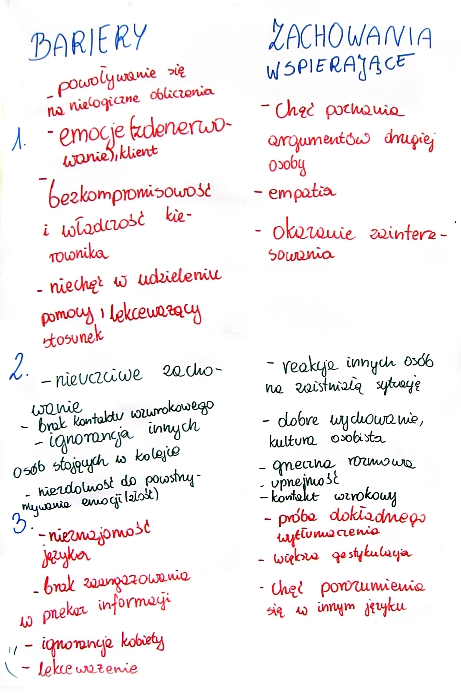 BARIERY
- powoływanie się
na nielogiczne obliczenia
1.
- emocje (zdenerwo-
wanie), klient
-
bezkompromisowość
i władczość kie-
rownika
- niechęć w udzieleniu
pomocy i lekceważący
stosunek
ZACHOWANIA
WSPIERAJĄCE
- Chęć poznania
argumentów drugiej
osoby
- empatia
- okazanie zaintere-
sowania
2.
- nieuczciwe zacho-
wanie
- brak kontaktu wzrokowego
- ignorancja innych
osób stojących w kolejce
- niezdolność do powstrzy-
mywania emocji (złość)
- reakcja innych osób
na zaistniałą sytuację
- dobre wychowanie,
kultura osobista
- grzeczna rozmowa
- uprzejmość
- kontakt wzrokowy
3.
- nieznajomość
języka
- brak zaangażowania
w przekaz informacji
- ignorancja kobiety
- lekceważenie
- próba dokładnego
wytłumaczenia
- większa gestykulacja
- chęć porozumienia
się w innym języku